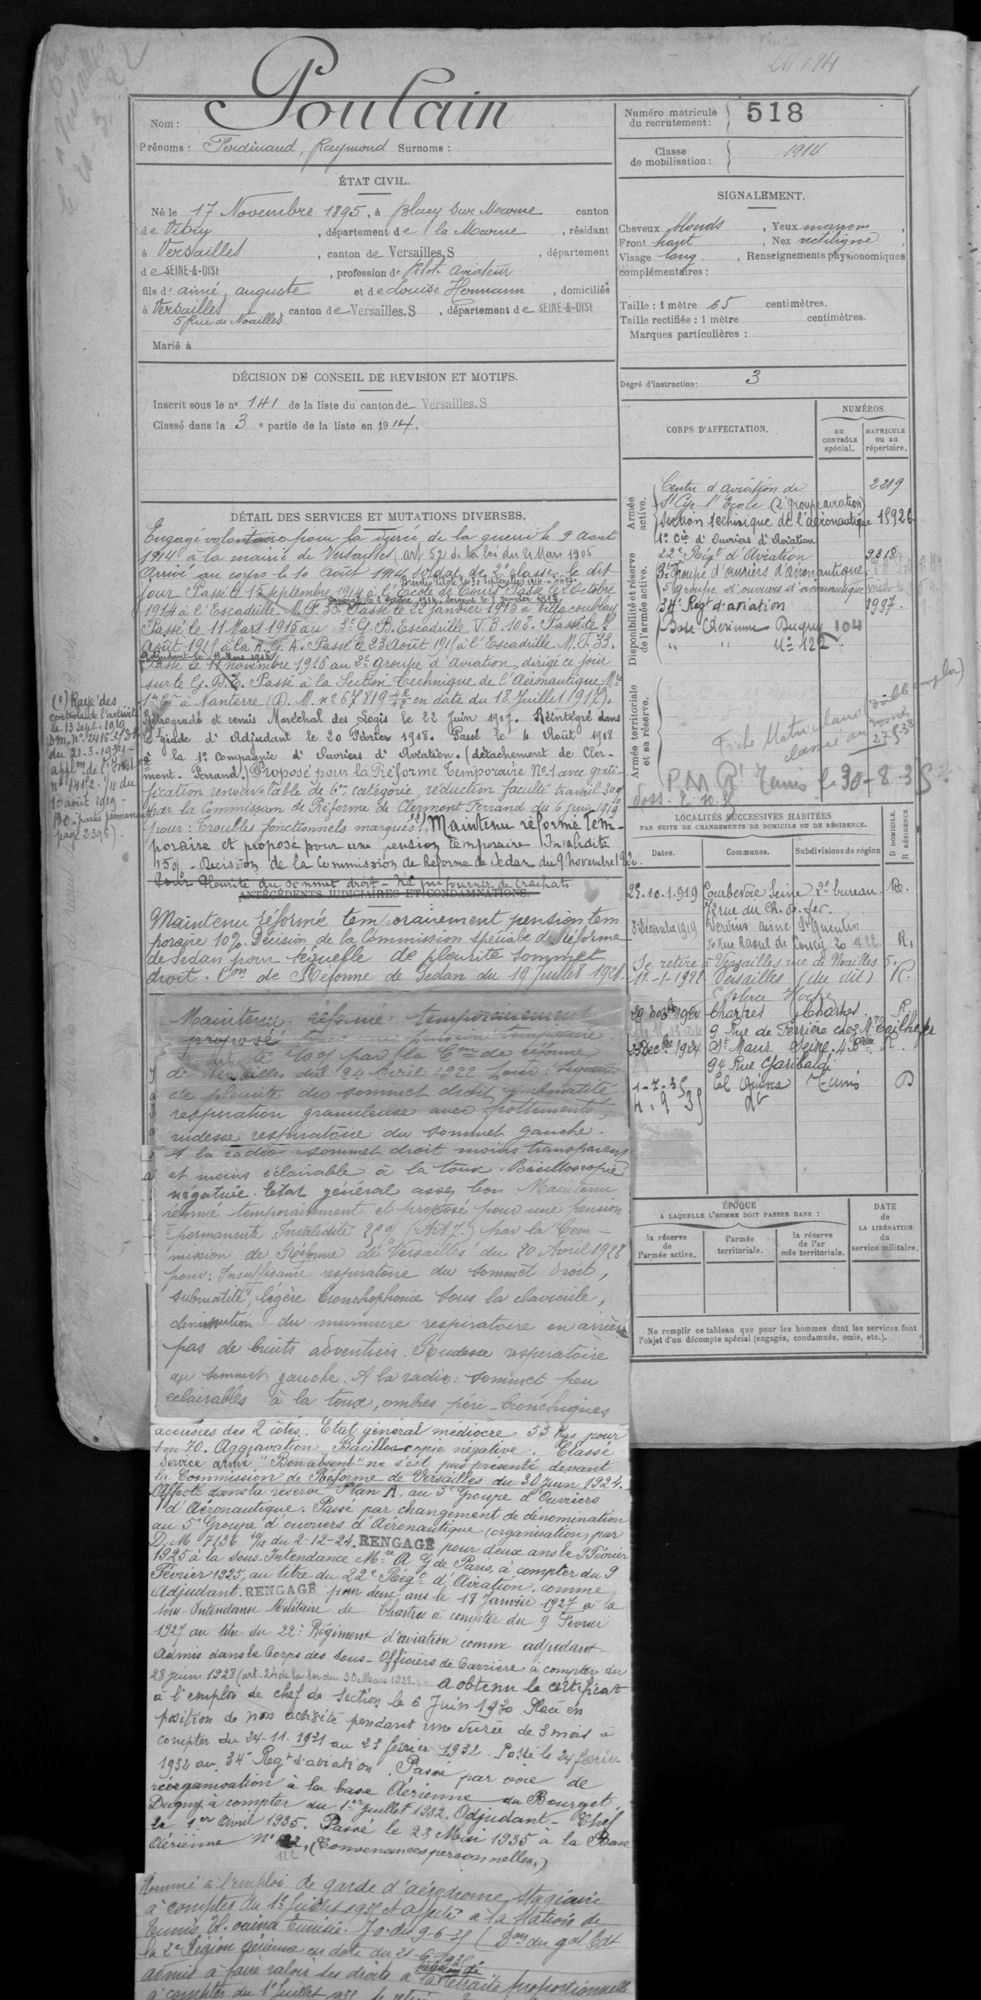 Nom : Poulain
Prénoms : Ferdinand, Raymond Surnoms :
Numéro matricule du recrutement : 518
Classe de mobilisation : 1914
ÉTAT CIVIL.
Né le 17 Novembre 1895, à Blacy sur Marne canton
de Vitry, département de la Marne, résidant
à Versailles, canton de Versailles.S, département
de SEINE-&-OISE, profession de pilote aviateur
fils d'aimé, auguste et de Louise Hermann, domiciliés
à Versailles canton de Versailles.S, département de SEINE-&-OISE
5 Rue de Noailles
Marié à
SIGNALEMENT.
Cheveux blonds, Yeux marron,
Front haut, Nez rectiligne,
Visage long. Renseignements physionomiques
complémentaires :
Taille : 1 mètre 65 centimètres.
Taille rectifiée : 1 mètre centimètres.
Marques particulières :
Degré d'instruction : 3
DÉCISION DU CONSEIL DE REVISION ET MOTIFS.
Inscrit sous le nº 141 de la liste du canton de Versailles.S
Classé dans la 3e partie de la liste en 1914.
DÉTAIL DES SERVICES ET MUTATIONS DIVERSES.
Engagé volontaire pour la durée de la guerre le 9 août
1914 à la mairie de Versailles, art. 52 de la loi du 21 Mars 1905
Arrivé au corps le 10 Août 1914 soldat de 2e classe le dit
jour Passé le 13 septembre 1914 à l'Ecole de Tours Passé le 2 octobre
1914 à l'Escadrille M.F. 33. Passé le 21 janvier 1915 à Villacoublay
Passé le 11 Mars 1915 au 3e G.B. Escadrille V.B. 108. Passé le
Août 1915 à la R.G.A. Passé le 23 Août 1915 à l'Escadrille M.F. 33.
Passé le 11 novembre 1916 au 2e groupe d'Aviation, dirigé ce jour
sur le G.D.E. Passé à la Section Technique de l'Aéronautique Mre
à Nanterre (D.M. nº 67819 en date du 18 Juillet 1917).
Rétrogradé et remis Maréchal des Logis le 22 Juin 1917. Réintégré dans
le grade d'Adjudant le 20 Février 1918. Passé le 4 Août 1918
à la 1e compagnie d'Ouvriers d'Aviation. (détachement de Cler-
mont-Ferrand) Proposé pour la Réforme Temporaire Nº 1 avec grati-
fication renouvelable de 6me catégorie, réduction faculté travail 30%
par la Commission de Réforme de Clermont Ferrand du 6 juin 1919
pour : Troubles fonctionnels marqués (1) Maintenu réformé Tem-
poraire et proposé pour une pension temporaire Invalidité
15% - Décision de la Commission de Réforme de Sedan du 9 novembre 1920.
Pour Pleurite du sommet droit - N'a pu fournir de crachats
ANTÉCÉDENTS JUDICIAIRES ET CONDAMNATIONS.
Maintenu réformé temporairement pension tem
poraire 10% Décision de la Commission spéciale de Réforme
de Sedan pour sequelle de pleurite sommet
droit. Con de Réforme de Sedan du 19 juillet 1921.
Maintenu réformé temporairement
proposé pour une pension temporaire
de 10% par la Con de réforme
de Versailles du 24 Avril 1922 pour : séquelles
de pleurite du sommet droit, submatité
respiration granuleuse avec frottements,
rudesse respiratoire du sommet gauche.
A la radio sommet droit moins transparent
et moins éclairable à la toux. Bacilloscopie
négative. Etat général assez bon Maintenu
réformé temporairement et proposé pour une pension
permanente Invalidité 20% (Art 7) par la Com-
mission de Réforme de Versailles du 20 Avril 1923
pour : Insuffisance respiratoire du sommet droit,
submatité, légère bronchophonie sous la clavicule,
diminution du murmure respiratoire en arrière
pas de bruits adventices. Rudesse respiratoire
au sommet gauche. A la radio : sommet peu
éclairables à la toux, ombres péri-bronchiques
accusées des 2 côtés. Etat général médiocre 55 Kgs pour
1m 70. Aggravation. Bacilloscopie négative. Classé
Service armé "Bon absent" ne s'est pas présenté devant
la Commission de Réforme de Versailles du 30 juin 1924.
Affecté dans la réserve Plan A. au 5e Groupe d'Ouvriers
d'Aéronautique. Passé par changement de dénomination
au 5e Groupe d'ouvriers d'Aéronautique (organisation) par
D.M 7136 du 2-12-24. RENGAGÉ pour deux ans le 9 Février
1925 à la sous-Intendance Mre A G de Paris, à compter du 9
Février 1925, au titre du 22e Régt d'Aviation, comme
Adjudant. RENGAGÉ pour deux ans le 18 Janvier 1927 à la
sous-Intendance Militaire de Chartres à compter du 9 Février
1927 au titre du 22e Régiment d'aviation comme adjudant
Admis dans le Corps des Sous-Officiers de Carrière à compter du
28 juin 1928 (art. 24 de la loi du 30 Mars 1928). A obtenu le certificat
à l'emploi de chef de section le 6 Juin 1930 Placé en
position de non activité pendant une durée de 3 mois à
compter du 24-11-1931 au 23 février 1932. Passé le 24 février
1932 au 34e Régt d'aviation Passé par voie de
réorganisation à la base Aérienne du Bourget
Dugny à compter du 1er juillet 1932. Adjudant-Chef
le 1er avril 1935. Passé le 23 Mai 1935 à la Base
Aérienne Nº 122, (Convenances personnelles.)
Nommé à l'emploi de garde d'aérodrome stagiaire
à compter du 1er Juillet 1935 et affecté à la Station de
Tunis El. ouina Tunisie. J.O. du 9-6-35 (Don du gal Cdt
la 2e Région aérienne en date du 21-6-1935
admis à faire valoir ses droits à la retraite proportionnelle
à compter du 1er Juillet
(1) Rayé des
contrôles de l'activité
le 13 Sept 1919
10 août 1919
page 2306).
CORPS D'AFFECTATION.
NUMÉROS
AU CONTRÔLE spécial.
MATRICULE ou au répertoire.
Armée active.
Centre d'aviation de 2219
St Cyr l'Ecole (2e groupe aviation)
Section technique de l'aéronautique 18926
1e Cie d'Ouvriers d'Aviation
Disponibilité et réserve de l'armée active.
22e Régt d'Aviation 9318
3e Groupe d'ouvriers d'Aéronautique
5e groupe d'ouvriers d'aéronautique
34e Régt d'aviation 2997.
Base Aérienne Dugny 104
" " Nº 122.
Armée territoriale et sa réserve.
Fiche Matriculaire
classé au
27 5 38
P.M. Rt Tunis le 30-8-35
LOCALITÉS SUCCESSIVES HABITÉES
PAR SUITE DE CHANGEMENTS DE DOMICILE OU DE RÉSIDENCE.
Dates. Communes. Subdivisions de région D DOMICILE. R RÉSIDENCE
25-10-1919 Courbevoie Seine 2e bureau R.
rue du Ch. de fer.
3 Décembre 1919 Vervins aisne St Quentin
rue Raoul de Coucy 20 R.
Se retire à Versailles rue de Noailles 5.
11-1-1921 Versailles (du dit) R.
Place Hoche
1924 Chartres Chartres R.
9 Rue de Ferrière chez Mr
23 Decbre 1924 St Maur Seine. 4e bau R.
94 Rue Garibaldi
1-7-35 El Ouina Tunis D
4.9 35
ÉPOQUE
A LAQUELLE L'HOMME DOIT PASSER DANS :
la réserve de l'armée active.
l'armée territoriale.
la réserve de l'armée territoriale.
DATE de LA LIBÉRATION du service militaire.
Ne remplir ce tableau que pour les hommes dont les services font
l'objet d'un décompte spécial (engagés, condamnés, omis, etc.).